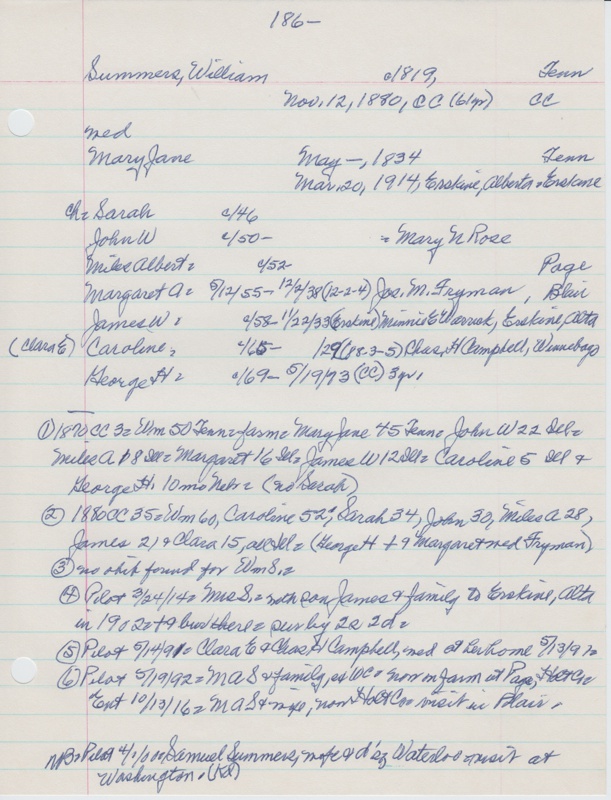 186-
Summers, William c1819, Tenn
Nov. 12, 1880, CC (61yr) CC
med
Mary Jane May —, 1834 Tenn
Mar. 20, 1914, Erskine, Alberta = Erskine
ch = Sarah c/46
John W c/50- = Mary N Rose
Miles Albert = c/52- Page
Margaret A = 5/12/55- 12/2/38 (12-2-4) Jos. M. Fryman, Blair
James W = c/58- 11/22/33 (Erskine) Minnie E Warrick, Erskine, Alta
(Clara E) Caroline = c/65- /29 (88-3-5) Chas. H Campbell, Winnebago
George H = c/69- 5/19/73 (CC) 3yr.
① 1870 CC 3 = Wm 50 Tenn = farm = Mary Jane 45 Tenn = John W 22 Ill =
Miles A 18 Ill = Margaret 16 Ill = James W 12 Ill = Caroline 5 Ill &
George H. 10 mo Neb = (no Sarah)
② 1880 CC 35 = Wm 60, Caroline 52!, Sarah 34, John 30, Miles A 28,
James 21 & Clara 15, all Ill = (George H + & Margaret med Fryman)
③ no obit found for Wm S. =
④ Pilot 3/24/14 = Mrs S. = with son James & family to Erskine, Alta
in 1902 = + & bur there = surv by 2s 2d =
⑤ Pilot 5/14/91 = Clara E & Chas. H Campbell, med at her home 5/13/91 =
⑥ Pilot 5/19/92 = M A S & family, ex WC = now on farm at Page, Holt Co =
Ent 10/13/16 = M A S & wife, now Holt Co = visit in Blair.
NB = Pilot 4/1/00, Samuel Summers, wife & d' of Waterloo = visit at
Washington. (Kd)